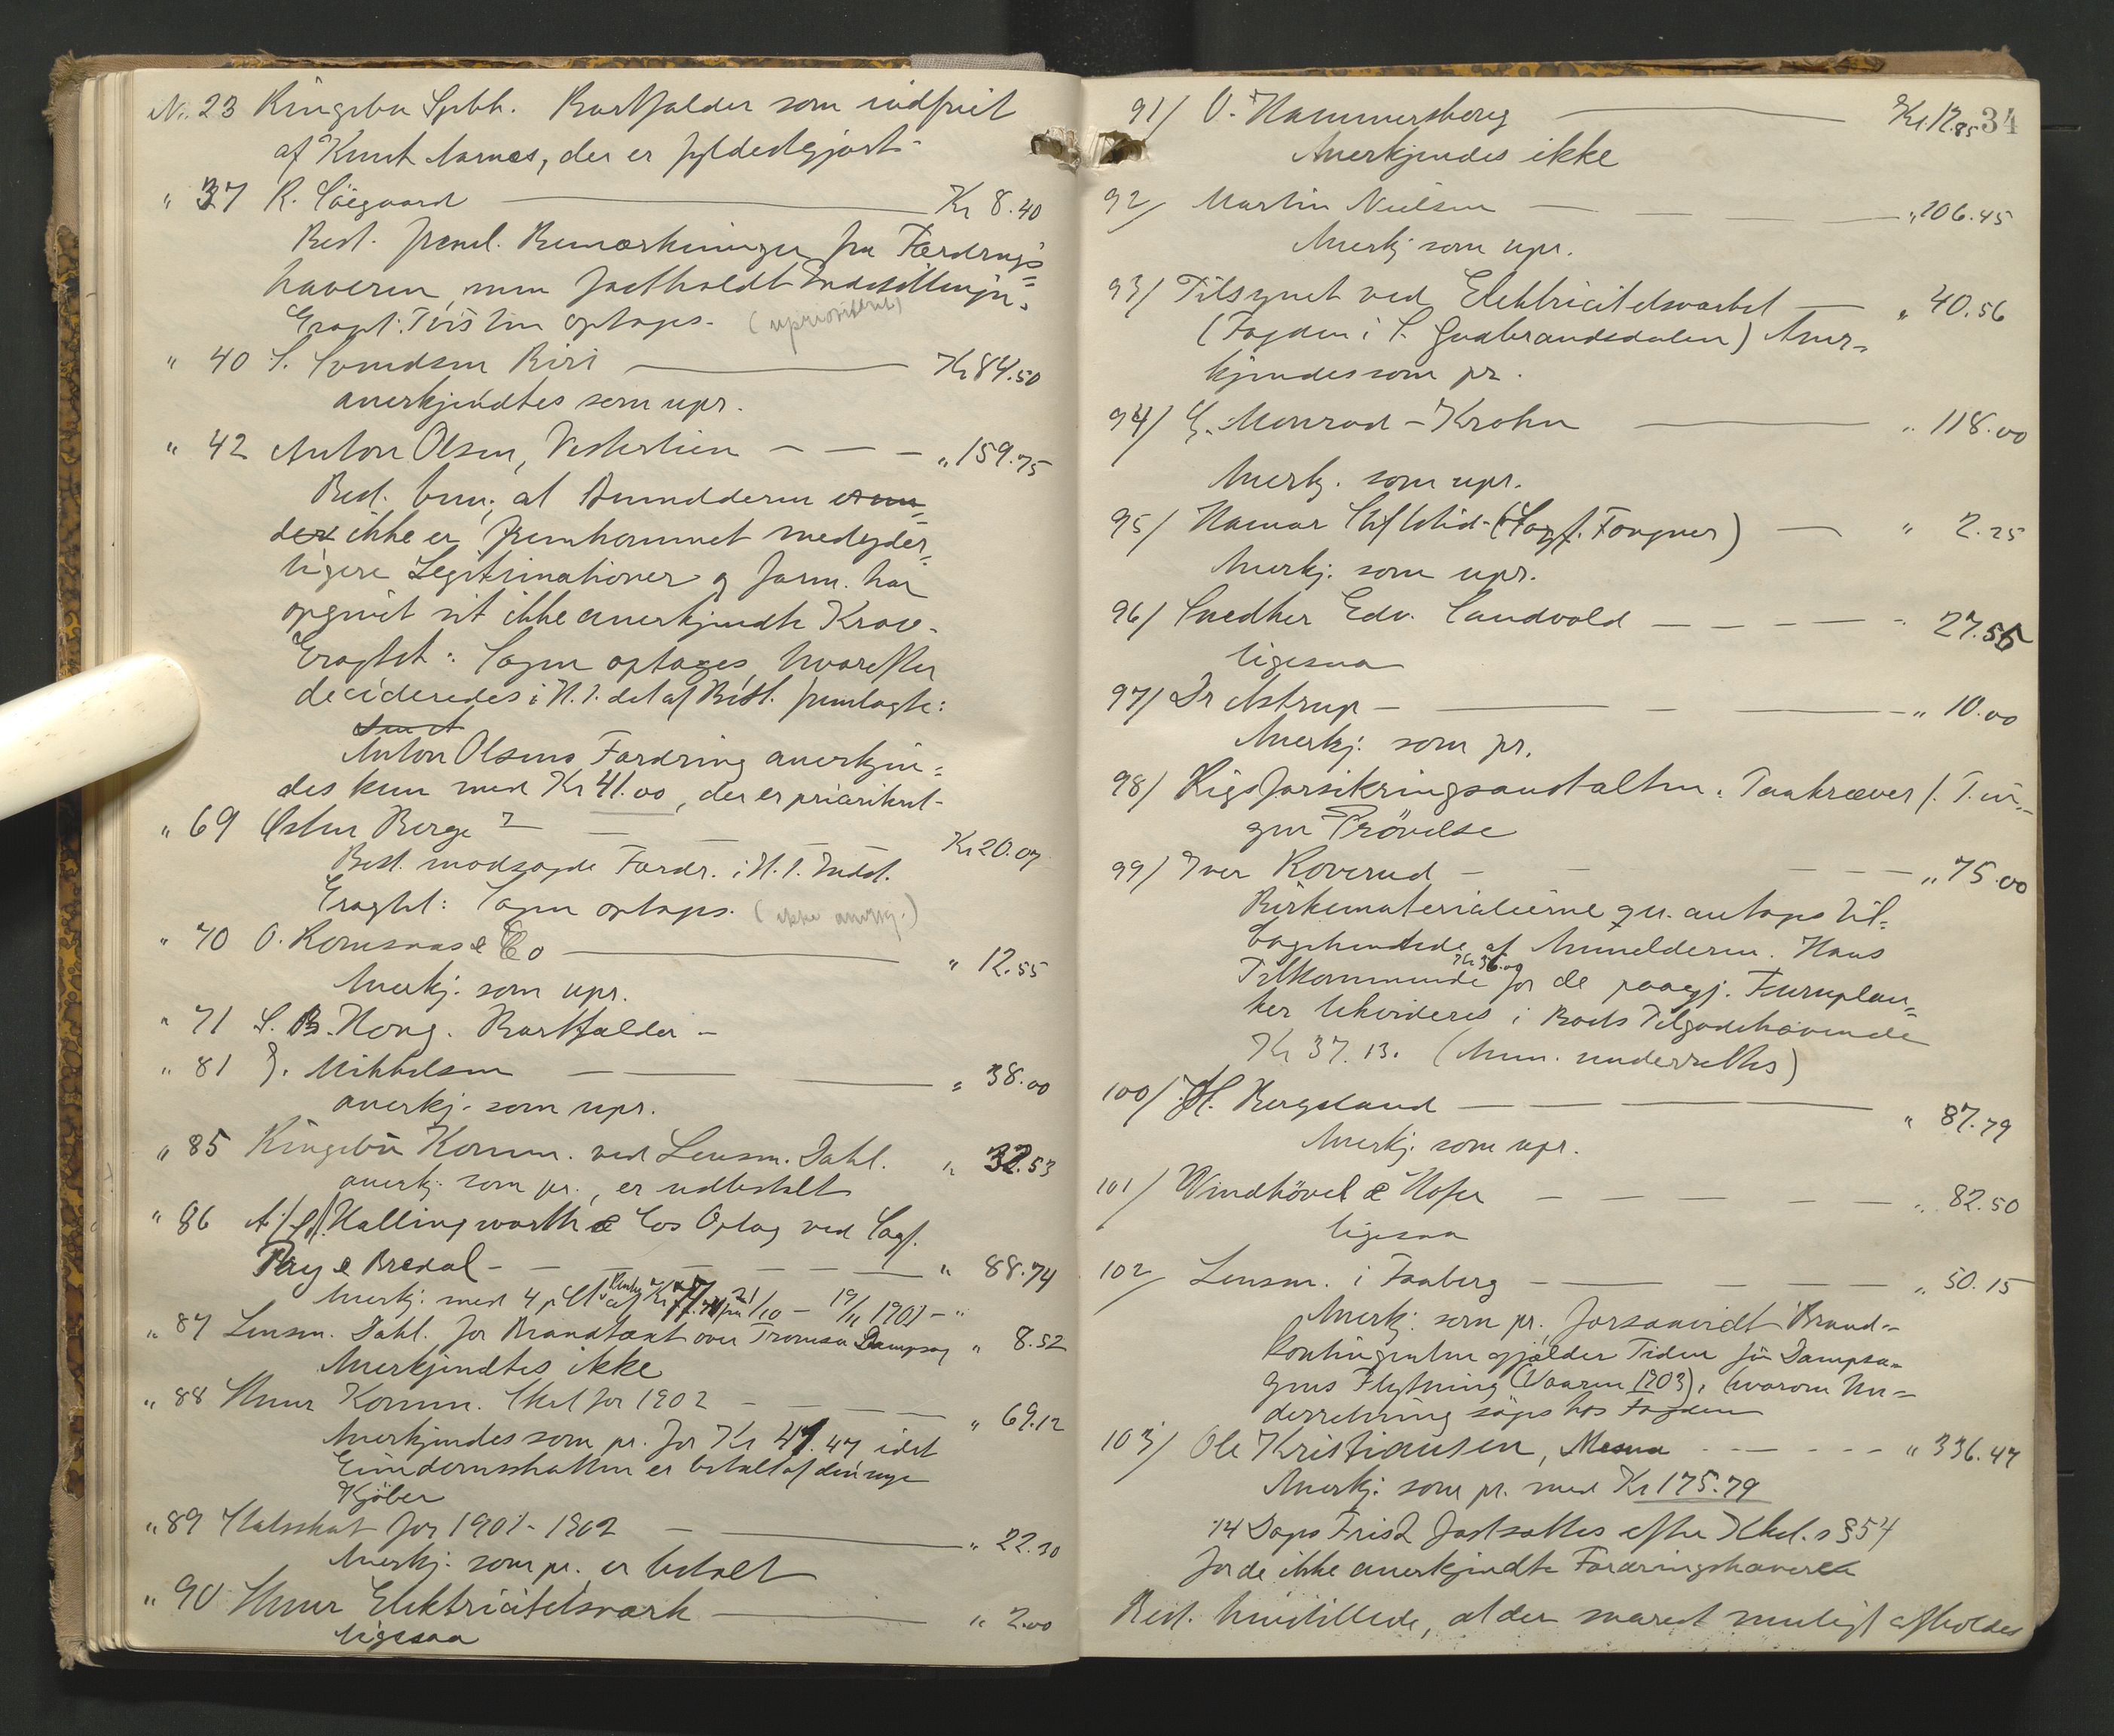 No. 23 Ringebu Spbk. Bortfalder som indfriet
af Knut Aarnes, der er fyldestgjort.
" 37 R. Söegaard Kr 8.40
Best. freml. Bemærkninger fra Fordrings=
haveren, men fastholdt Indstillingen.
Eragt: Tvisten optages. (uprioriteret)
" 40 S. Svendsen Biri Kr 84.50
anerkjendtes som upr.
" 42 Anton Olsen, Vesterlien — — — " 159.75
Best. bem. at Anmelderen
ikke er fremkommet med yder=
ligere Legitimationer og form. har
opgivet sit ikke anerkjendte Krav.
Eragtet: Sagen optages, hvorefter
decideredes i H. t. det af Best. fremlagte:
Anton Olsens Fordring anerkjen=
des kun med Kr 41.00, der er prioritert.
" 69 Østen Berge Kr 20.07
Best. modsagde Fordr. i H. t. Indst.
Eragtet: Sagen optages. (ikke anerkj.)
" 70 O. Romsaas & Co " 12.55
Anerkj. som upr.
" 71 S. B. Haug. Bortfalder —
" 81 J. Mikkelsen " 38.00
anerkj. som upr.
" 85 Ringebu Komm. ved Lensm. Dahl. " 32.53
anerkj. som pr., er udbetalt
" 86 A/S Hallingworth & Cos Oplag ved Sagf.
& Bredal — " 88.74
Anerkj. med 4 pCt Rente af Kr fra 21/10 – 19/11 1901 — "
" 87 Lensm. Dahl. for Brandtaxt over Tromsa Dampsag " 8.52
Anerkjendtes ikke
" 88 Komm. Skat for 1902 " 69.12
Anerkjendes som pr. for Kr 47.47 idet
Eiendomsskatten er betalt af den nye
Kjöber
" 89 Statsskat for 1901–1902 " 22.30
Anerkj. som pr. er betalt
" 90 Elektricitetsværk " 2.00
ligesaa
34
91/ O. Hammersborg Kr. 12.85
Anerkjendes ikke
92/ Martin Nielsen " 106.45
Anerkj. som upr.
93/ Tilsynet ved Elektricitetsværket " 40.56
(Fogden i S. Gudbrandsdalen) Aner=
kjendes som pr.
94/ G. Monrad-Krohn " 118.00
Anerkj. som upr.
95/ Hamar Stiftstid. (Sagf. Fougner) " 2.25
Anerkj. som upr.
96/ Snedker Edv. Sandvold " 27.55
ligesaa
97/ Dr Astrup " 10.00
Anerkj. som pr.
98/ Rigsforsikringsanstalten. Paakræver f. T. in=
gen Prövelse
99/ Iver Roverud " 75.00
Birkematerialierne antages til=
bagehentede af Anmelderen. Hans
Tilkommende Kr 36.00 for de paagj. Furuplan=
ker likvideres i Boets Tilgodehavende
Kr 37.13. (Anm. underrettes)
100/ H. Bergsland " 87.79
Anerkj. som upr.
101/ Windhövel & Hofer " 82.50
ligesaa
102/ Lensm. i Faaberg " 50.15
Anerkj. som pr., forsaavidt Brand=
kontingenten gjælder Tiden för Dampsa=
gens Flytning (Vaaren 1903), hvorom Un=
derretning söges hos Fogden
103/ Ole Kristiansen, Mesna " 336.47
Anerkj. som pr. med Kr 175.79
14 Dages Frist fastsattes efter Kkl.s § 54
for de ikke anerkjendte Fordringshavere
Best. henstillede, at der snarest muligt afholdes